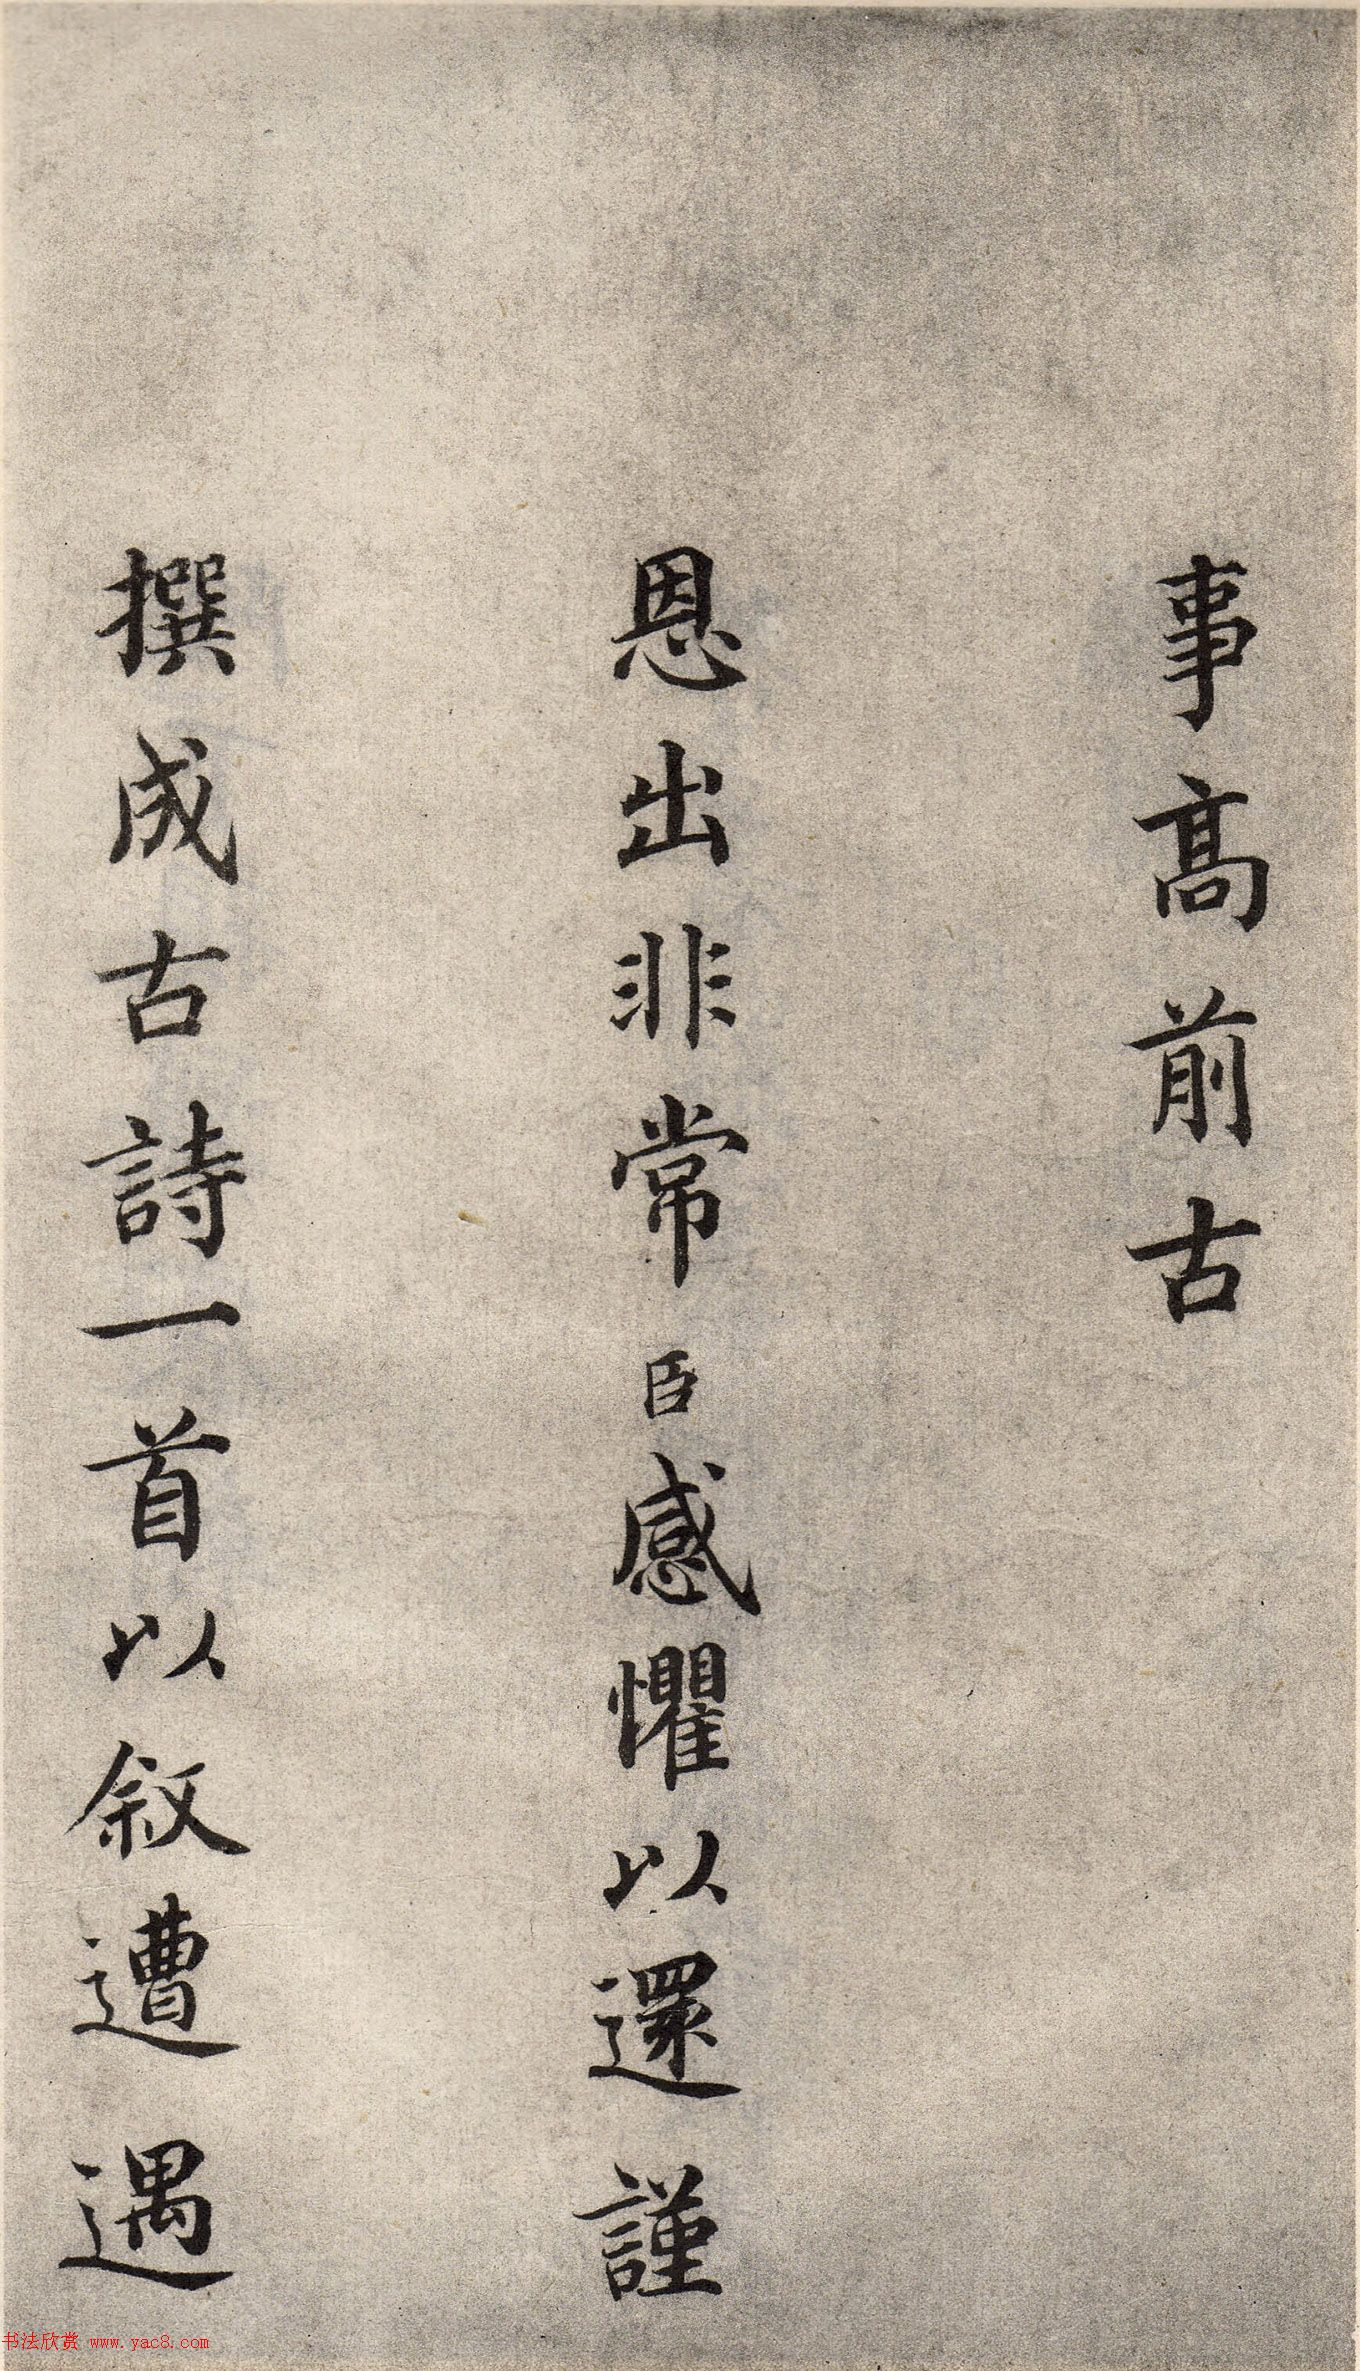 事高前古
恩出非常臣感懼以還謹
撰成古詩一首以敘遭遇
书法欣赏 www.yac8.com